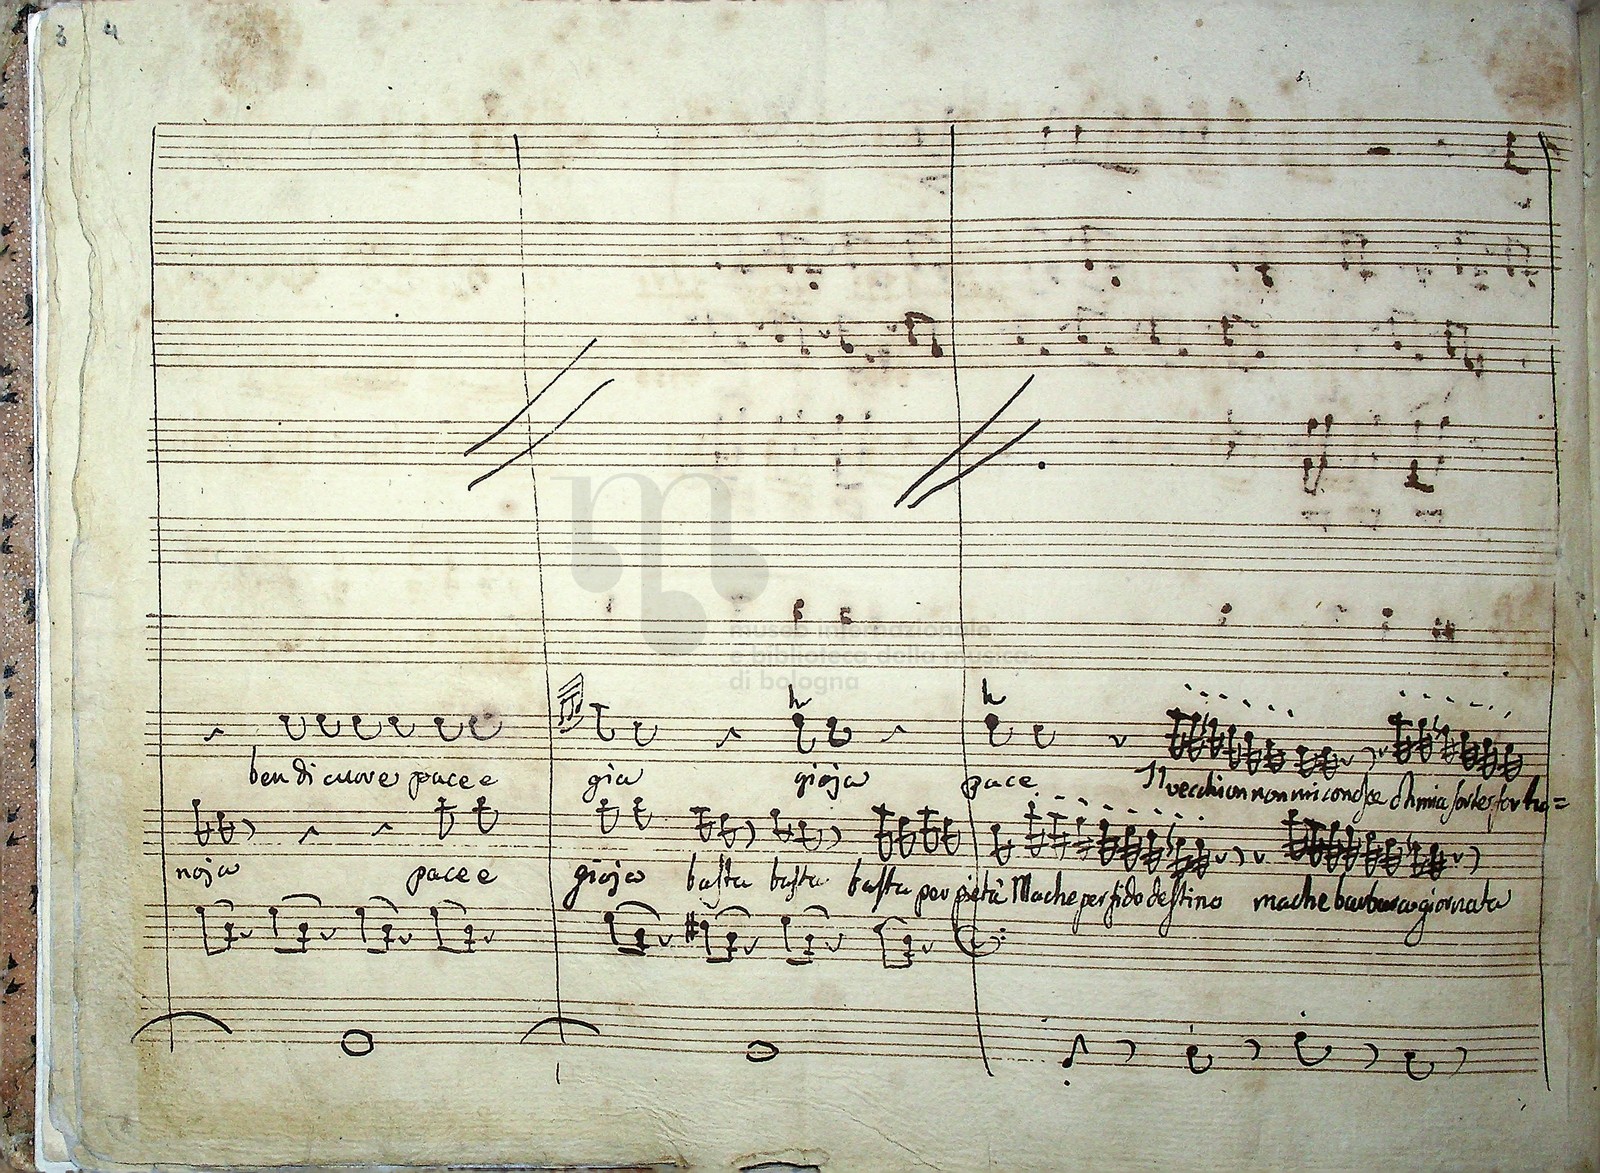 3 4
museo internazionale
e biblioteca della musica
di bologna
ben di cuore pace e gia gioja pace Il vecchion non mi conosce oh mia sorte fortu=
noja pace e gioja basta basta basta per pietà Ma che perfido destino ma che barbara giornata